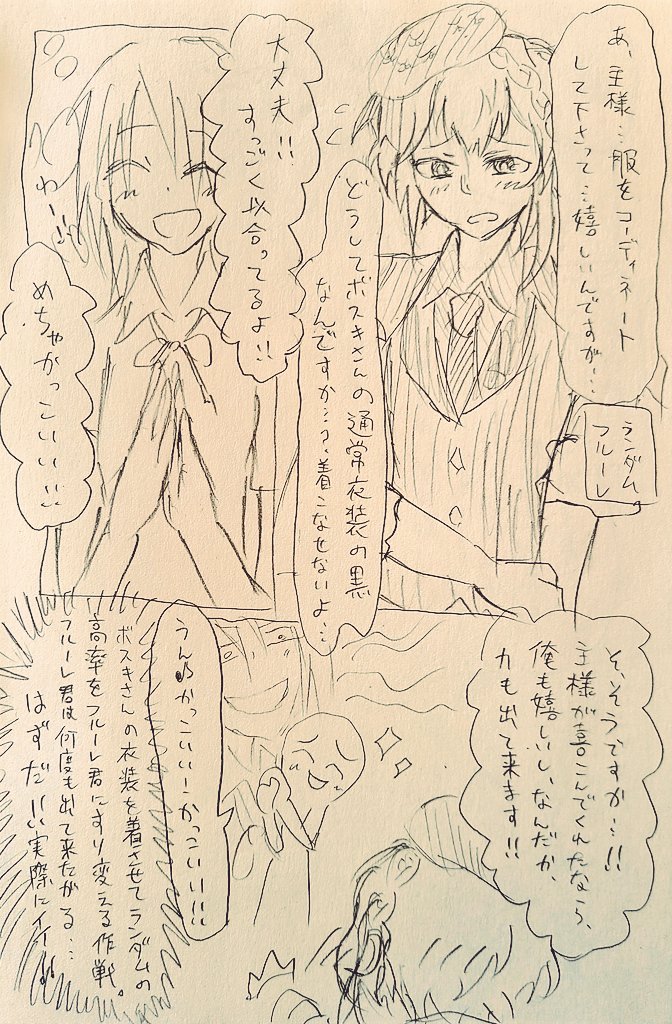 あ、主様…服をコーディネート
して下さって…嬉しいんですが…、
ランダム。
フルーレ
どうしてボスキさんの通常衣装の黒
なんですか…?、着こなせないよ…
大丈夫!!
すっごく似合ってるよ!!
わー!!
めちゃかっこいい!!
そ、そうですか…!!
主様が喜こんでくれたなら、
俺も嬉しいし、なんだか、
力も出て来ます!!
うん♪かっこいい!かっこいい!!
ボスキさんの衣装を着させてランダムの
高率をフルーレ君にすり変える作戦。
フルーレ君は何度も出て来たがる…
はずだ!!実際にイイ!!